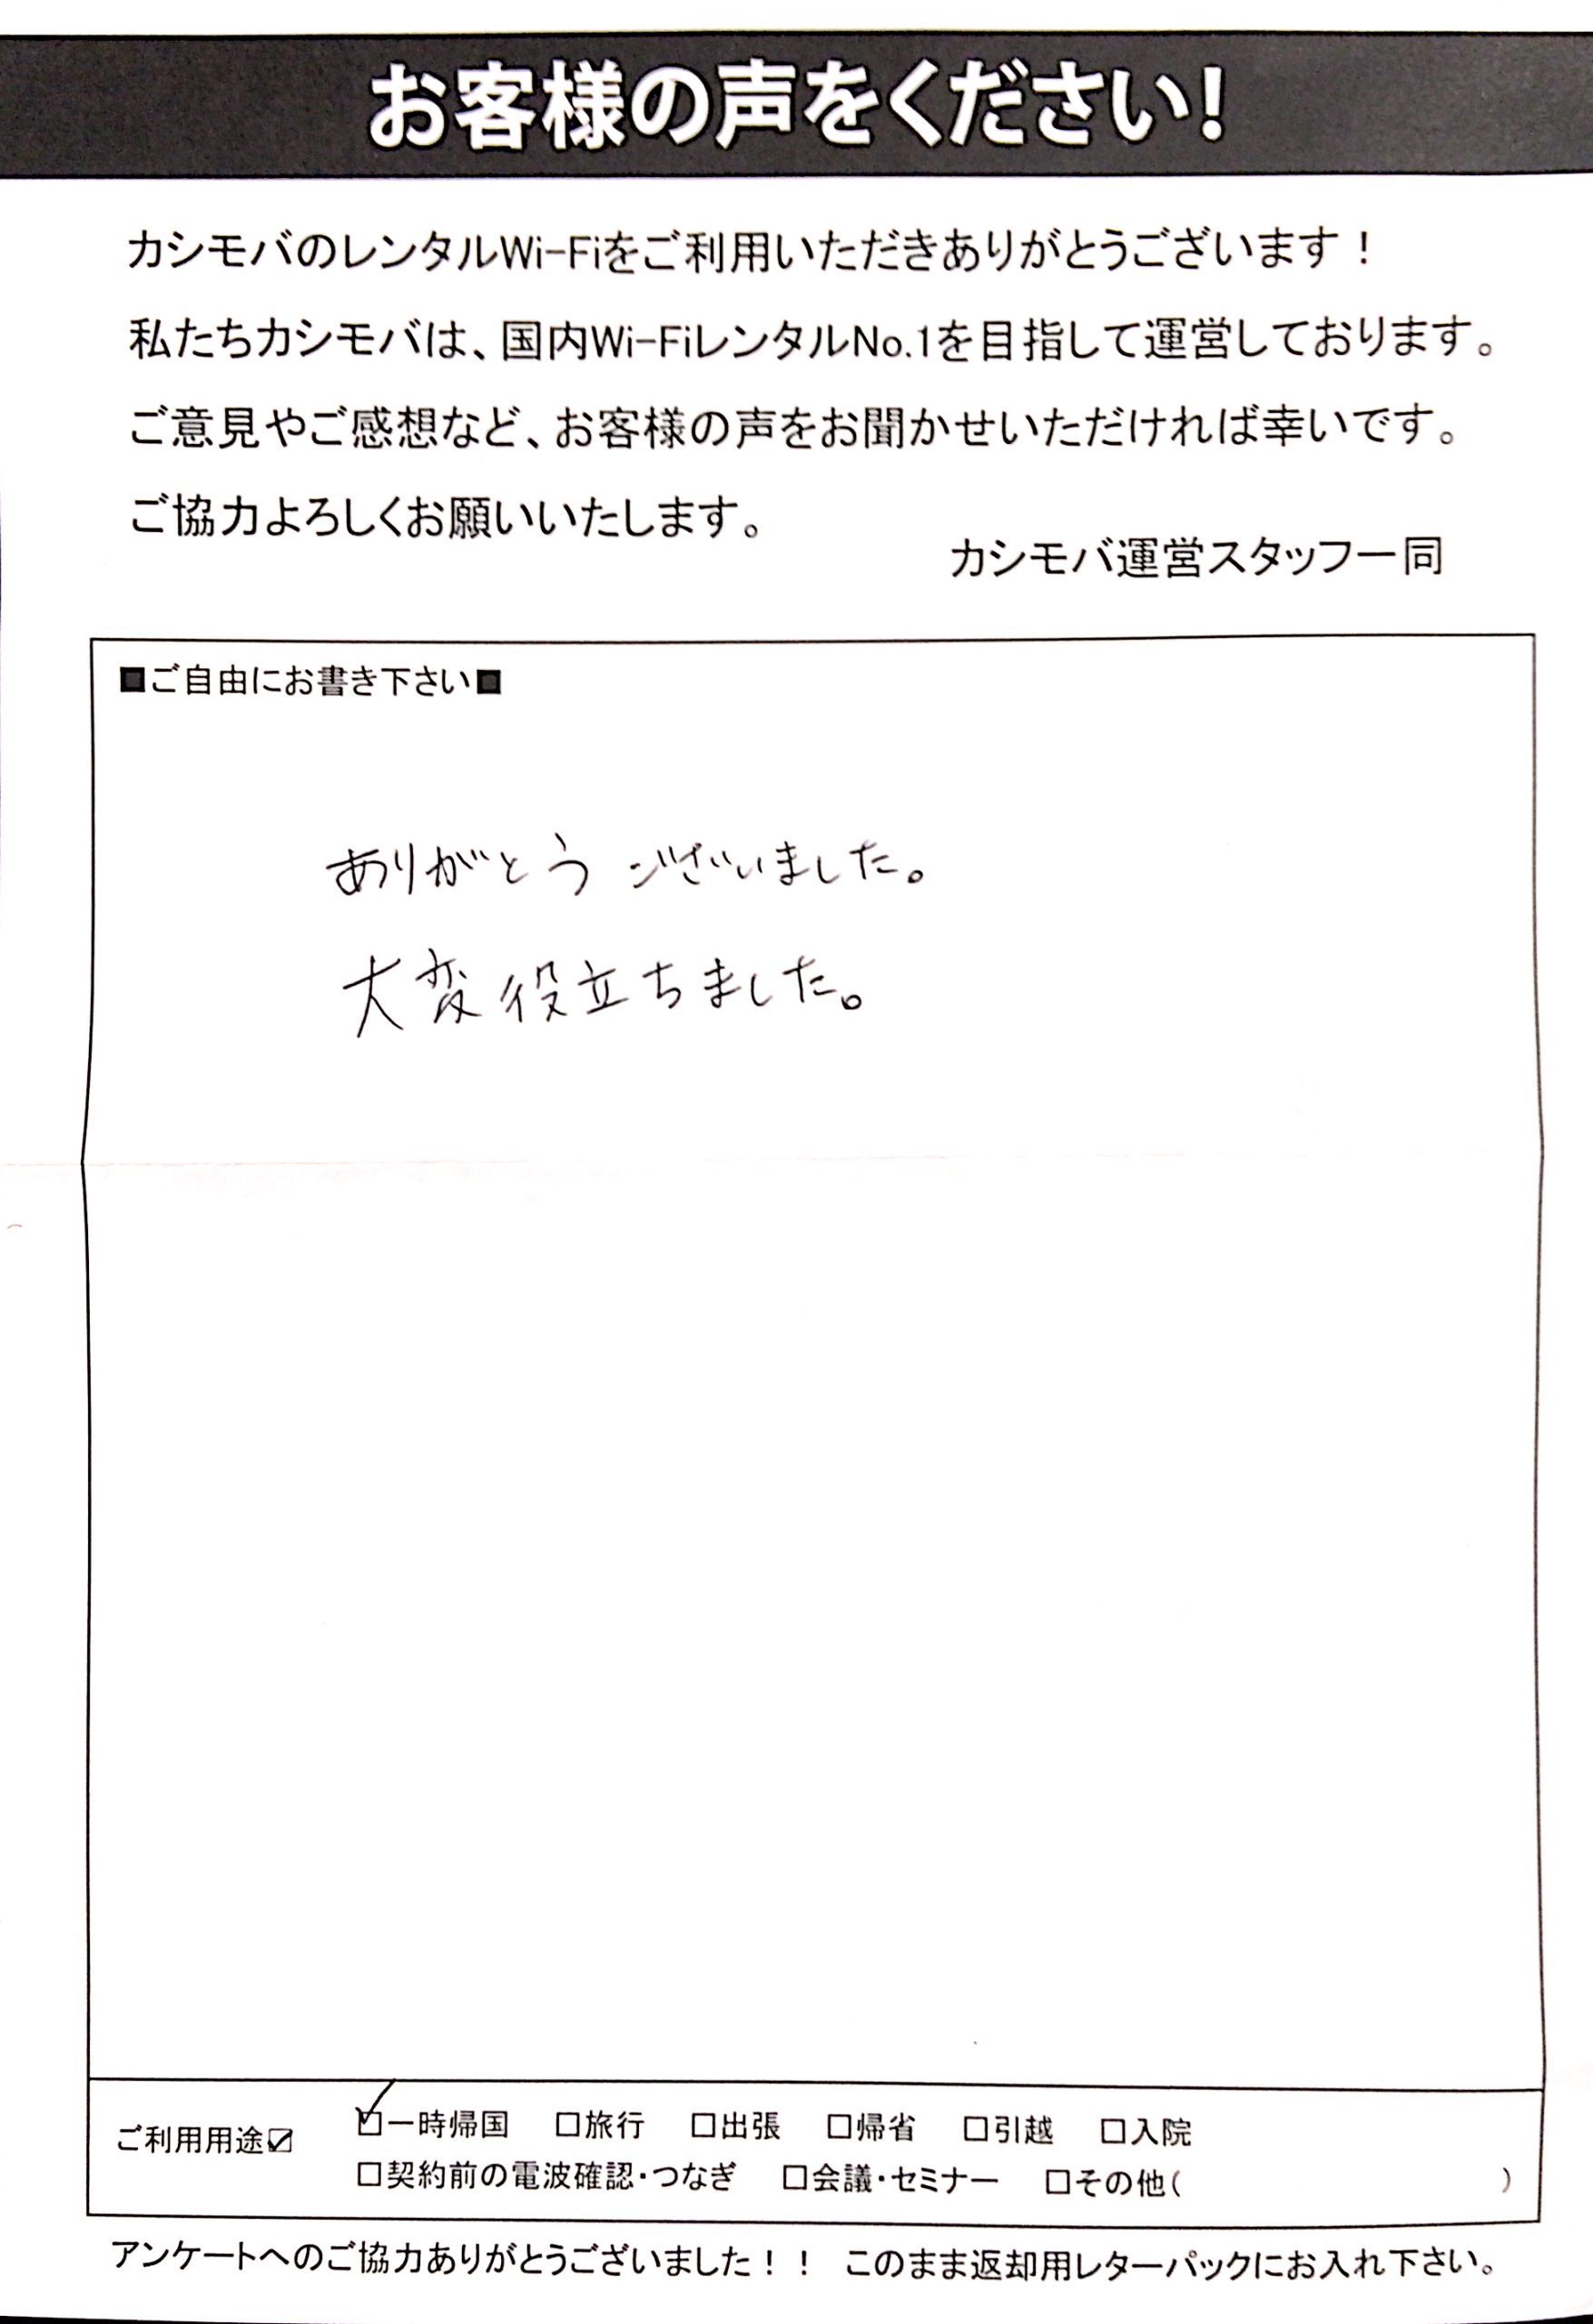 お客様の声をください!
カシモバのレンタルWi-Fiをご利用いただきありがとうございます！
私たちカシモバは、国内Wi-FiレンタルNo.1を目指して運営しております。
ご意見やご感想など、お客様の声をお聞かせいただければ幸いです。
ご協力よろしくお願いいたします。
カシモバ運営スタッフ一同
■ご自由にお書き下さい■
ありがとうございました。
大変役立ちました。
ご利用用途☑ ☑一時帰国 □旅行 □出張 □帰省 □引越 □入院
□契約前の電波確認・つなぎ □会議・セミナー □その他( )
アンケートへのご協力ありがとうございました！！ このまま返却用レターパックにお入れ下さい。